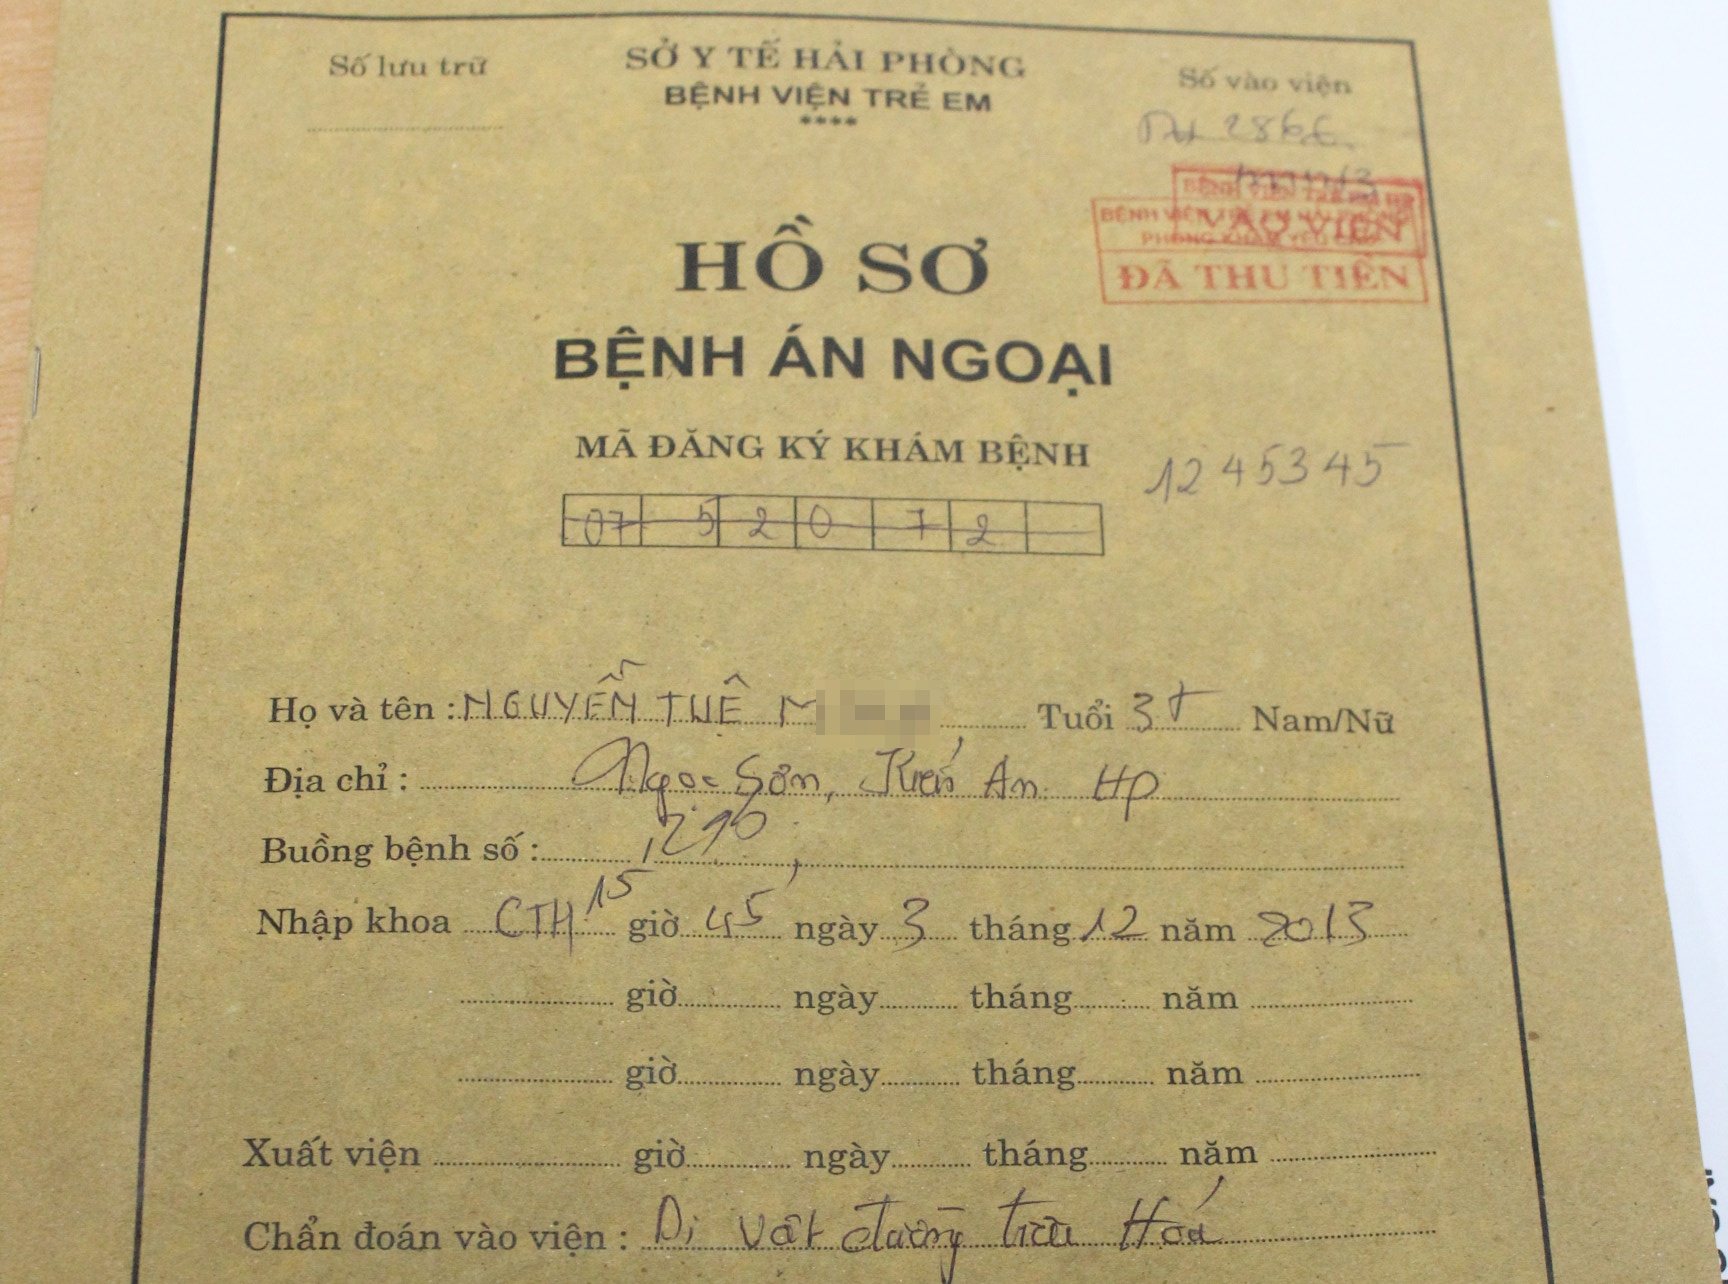 Số lưu trữ
SỞ Y TẾ HẢI PHÒNG
BỆNH VIỆN TRẺ EM
****
Số vào viện
BỆNH VIỆN TRẺ EM HẢI PHÒNG
VÀO VIỆN
ĐÃ THU TIỀN
HỒ SƠ
BỆNH ÁN NGOẠI
MÃ ĐĂNG KÝ KHÁM BỆNH
1245345
07 5 2 0 7 2
Họ và tên : NGUYỄN TUỆ M Tuổi 3T Nam/Nữ
Địa chỉ : Ngọc Sơn, Kiến An HP
Buồng bệnh số :
Nhập khoa CTH 15 giờ 45 ngày 3 tháng 12 năm 2013
giờ ngày tháng năm
giờ ngày tháng năm
Xuất viện giờ ngày tháng năm
Chẩn đoán vào viện : Dị vật đường tiêu Hoá